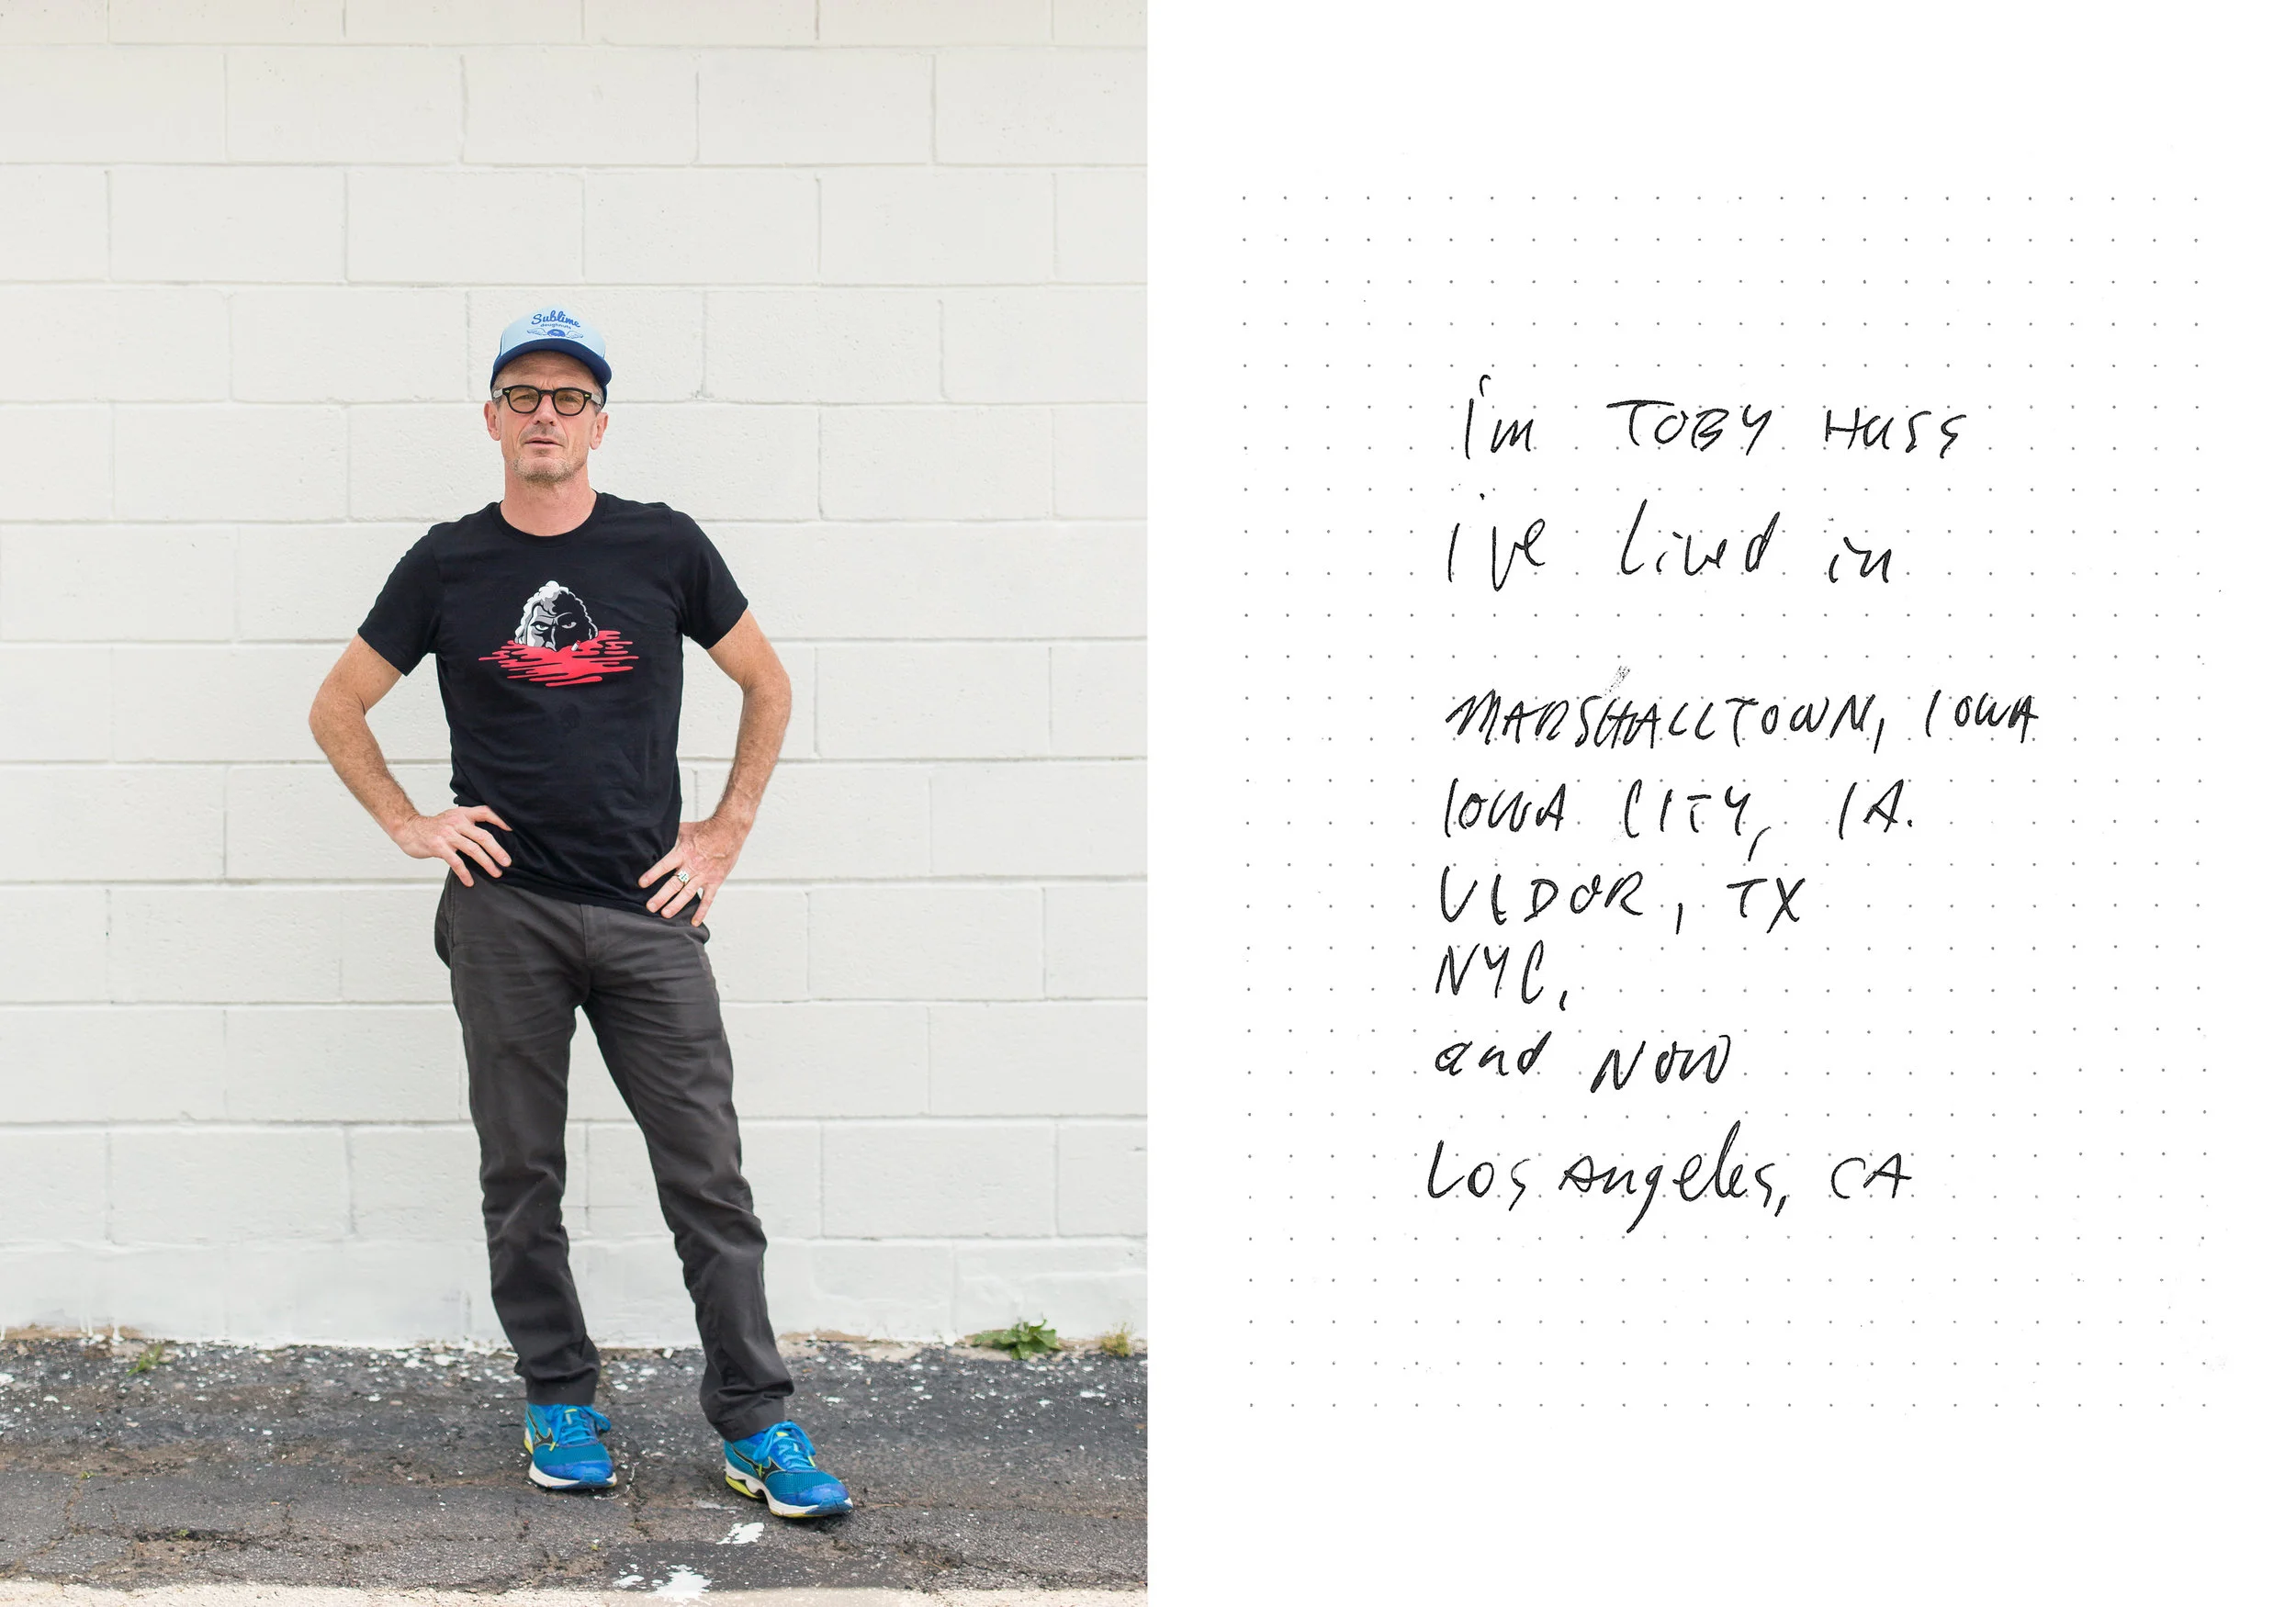 Sublime
doughnuts
i'm TOBY HUSS
i've lived in
MARSHALLTOWN, IOWA
IOWA CITY, IA.
VIDOR, TX
NYC,
and NOW
Los Angeles, CA